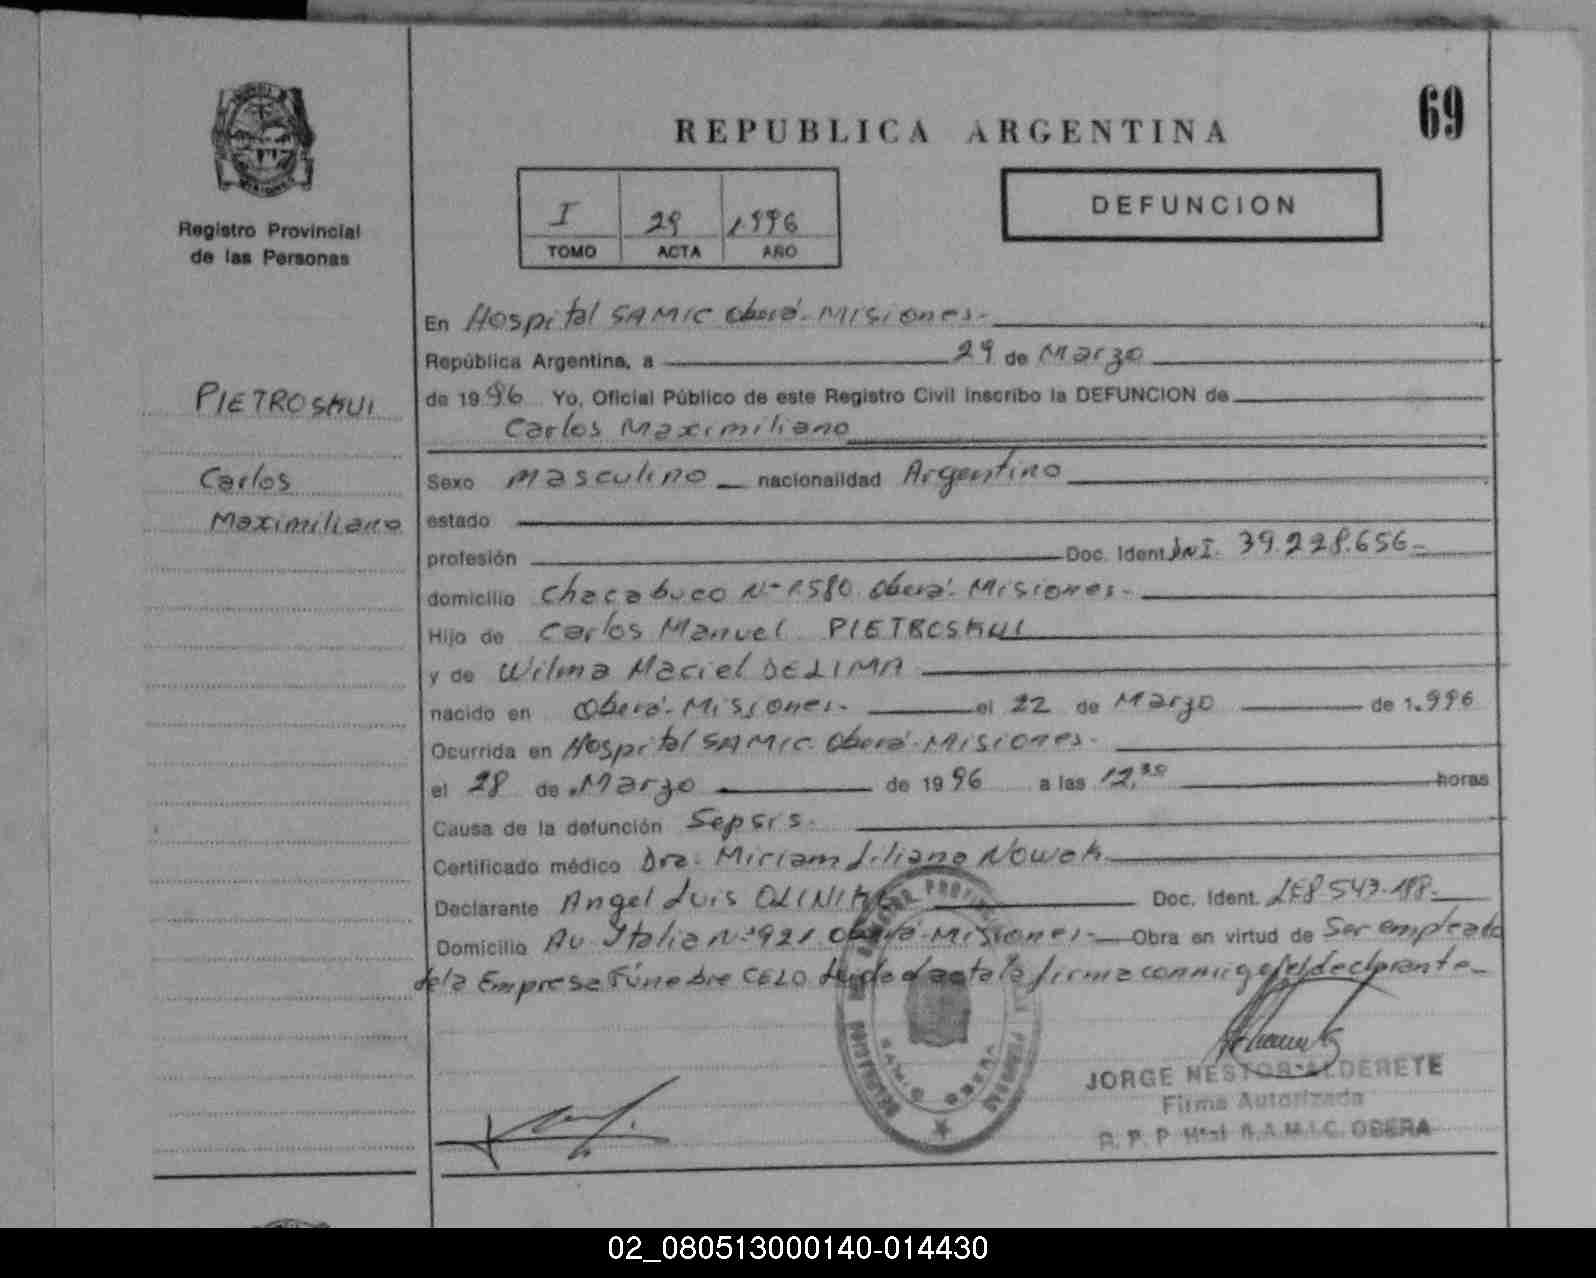 69
REPUBLICA ARGENTINA
I 29 1.996
TOMO ACTA AÑO
DEFUNCION
Registro Provincial
de las Personas
PIETROSKUI
Carlos
Maximiliano
En Hospital SAMIC Oberá-Misiones-
República Argentina, a 29 de Marzo
de 1996 Yo, Oficial Público de este Registro Civil inscribo la DEFUNCION de
Carlos Maximiliano
Sexo Masculino nacionalidad Argentino
estado
profesión Doc. Ident. DNI. 39.228.656-
domicilio Chacabuco N° 1580 Oberá-Misiones-
Hijo de Carlos Manuel PIETROSKUI
y de Wilma Maciel DELIMA
nacido en Oberá-Misiones- el 22 de Marzo de 1.996
Ocurrida en Hospital SAMIC Oberá-Misiones-
el 28 de Marzo de 1996 a las 12,30 horas
Causa de la defunción Sepsis.
Certificado médico Dra. Miriam Liliana Nowak
Declarante Angel Luis OLINIK Doc. Ident. LE8543.188-
Domicilio Av. Italia N° 921 Oberá-Misiones- Obra en virtud de Ser empleado
de la Empresa Fúnebre CELO Leida el acta la firma conmigo el declarante-
JORGE NESTOR ALDERETE
Firma Autorizada
R. P. P. Htal S.A.M.I.C. OBERA
02_080513000140-014430